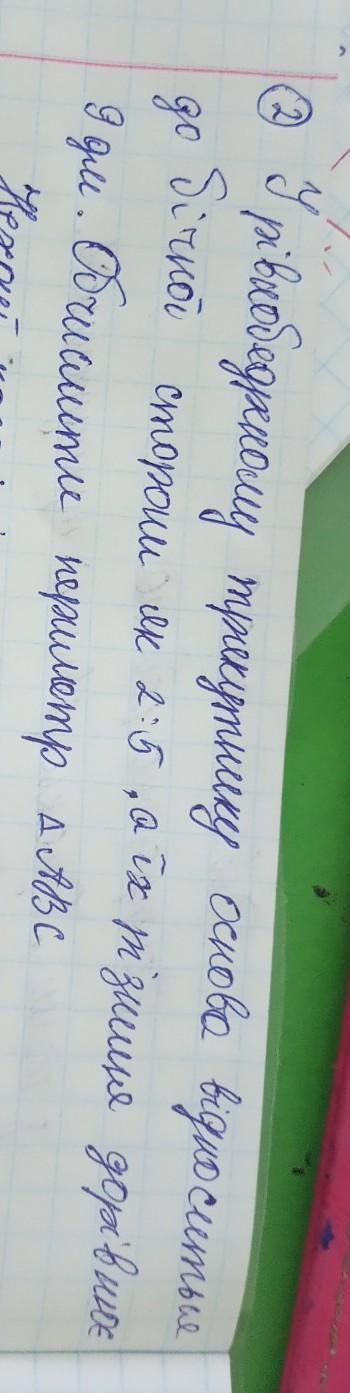 2 У рівнобедреному трикутнику основа відноситься
до бічної сторони як 2:5, а їх різниця дорівнює
9 дм. Обчислити периметр △ABC